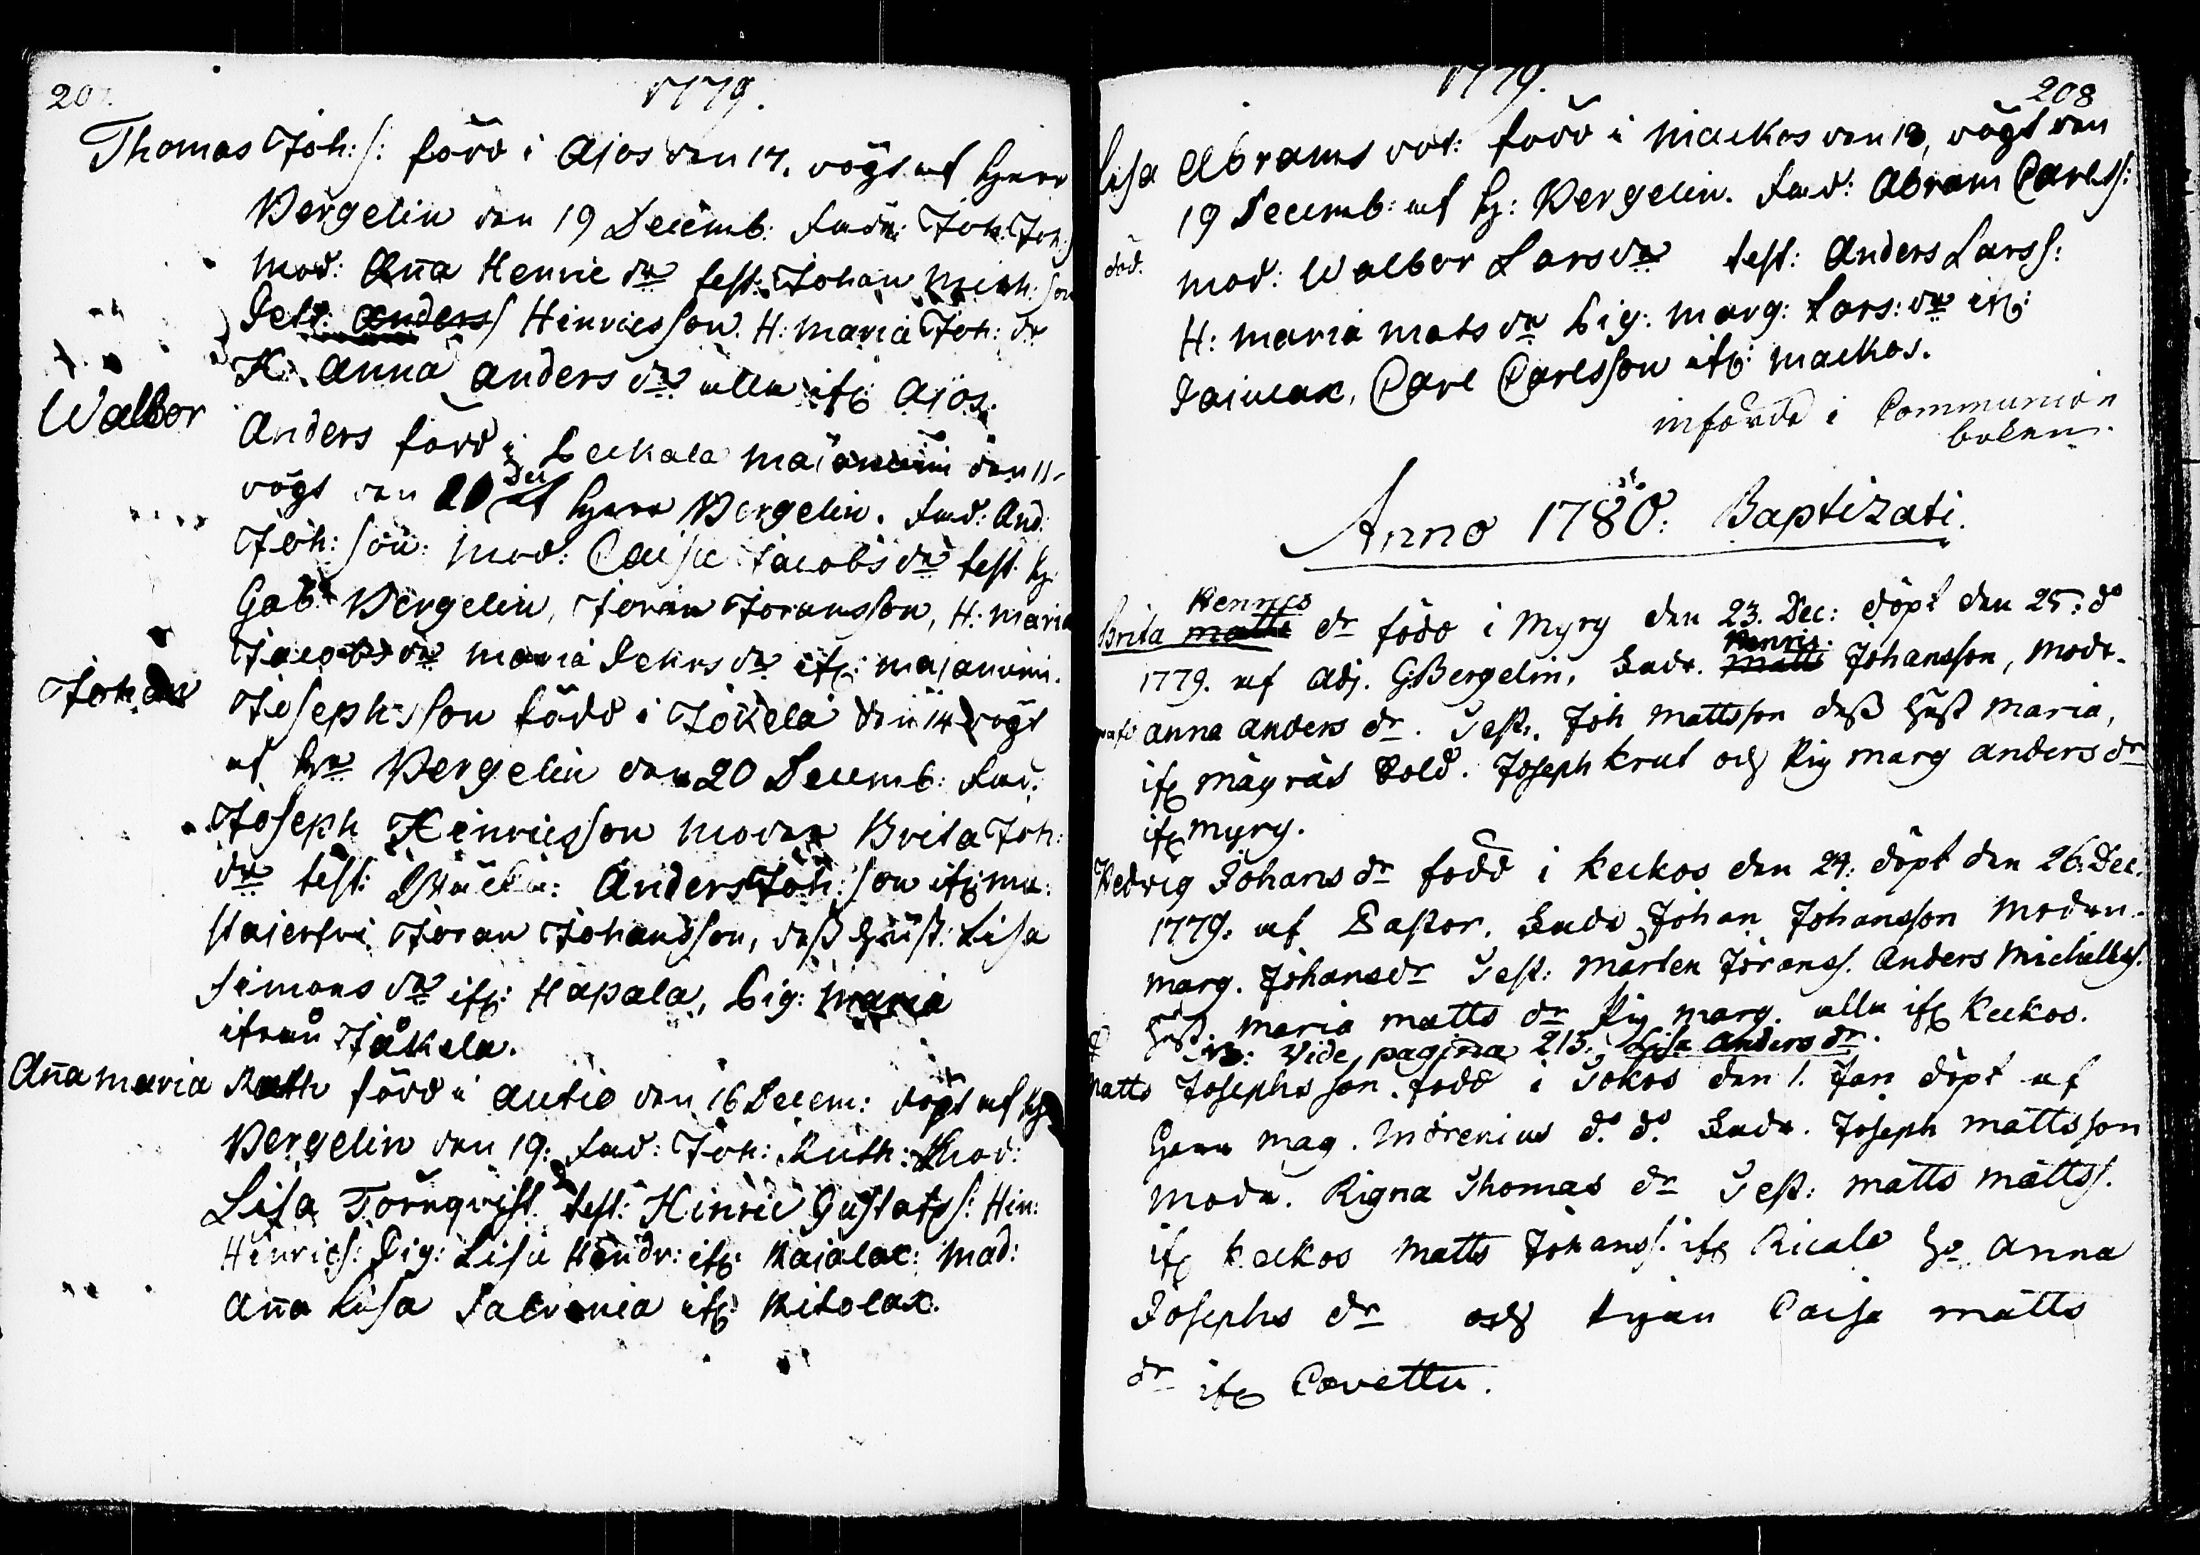 1779.
Thomas Joh:s: född i Ajos den 17. döpt af Herr
Bergelin den 19 Decemb: fadr: Joh: Joh:s
mod: Aña Henric dr test: Johan Mich:son
Anders Hinricsson. H: Maria Joh: dr
H: Anna Anders dr alla ifr: Ajos.
Walbor
Anders född i Leckala Majaniemi den 11.
döpt den 20 Dec af Herr Bergelin. fad: And:
Joh:son: mod: Caisa Jacobs dr test: H:
Gab: Bergelin, Jöran Joransson, H: Maria
Jacobs dr Maria Pehrs dr ifr: Majaniemi.
Johan
Josephsson född i Jokela den 14 döpt
af Hr Bergelin den 20 Decemb: fad:
Joseph Henricsson modren Brita Joh:
dr test: Anders Joh:son ifr: Mu:
stajerfvi Jöran Johansson, dess Hust: Lisa
Simons dr ifr: Hapala, Pig: Maria
ifrån Jåkela.
Aña Maria Ruth född i Autio den 16 Decem: döpt af H:
Bergelin den 19. fad: Joh: Ruth: Mod:
Lisa Törnqvist. test: Hinric Gustafs: Hin:
Hinrics: Pig: Lisa Hendr: ifr: Kajalax: Mad:
Aña Lisa ifr: Kitolax.
1779.
208
Lisa Abrams dot: född i Mackos den 18, döpt den
19 Decemb: af H: Bergelin. fad: Abram Carls:
död.
mod: Walbor Lars dr test: Anders Larss:
H: Maria Mats dr Pig: Marg: Lars: dr ifr:
Carl Carlsson ifr: Mackos.
införde i Communion
boken.
Anno 1780: Baptizati.
Henrics
Brita matts dr född i Myry den 23. Dec: döpt den 25: do
Henric
1779. af Adj. G:Bergelin. Fadr. Matts Johansson, Modr.
Anna Anders dr. Test. Joh Mattsson dess Hust Maria,
ifr Mäyräs Sold. Joseph Krut och Pig Marg Anders dr
ifr Myry.
Hedvig Johans dr född i Keckos den 24: döpt den 26: Dec:
1779. af Pastor. Fadr Johan Johansson Modren
Marg. Johans dr Test: Mårten Jöranss. Anders Michelss.
Hust: Maria Matts dr Pig Marg. alla ifr Keckos.
NB: Vide pagina 213. Lisa Anders dr.
Matts Josephs son. född i Sokos den 1. Jan döpt af
Herr Mag. Indrenius do do. Fadr. Joseph Mattsson
Modr. Rigna Thomas dr Test: Matts Mattss.
ifr Keckos Matts Johanss. ifr Ricala Hu Anna
Josephs dr och Pigan Caisa Matts
dr ifr Pavettu.